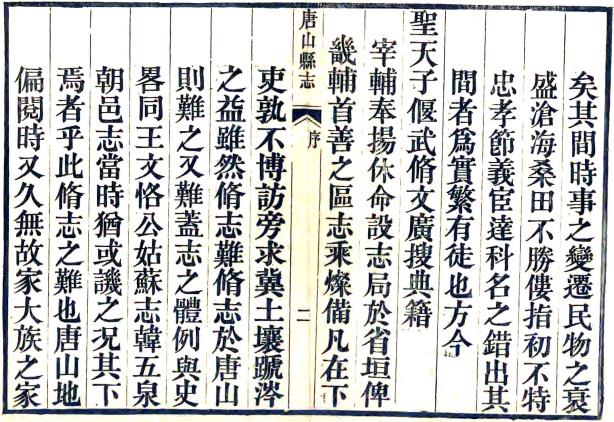 矣其間時事之變遷民物之衰
盛滄海桑田不勝僂指初不特
忠孝節義宦達科名之錯出其
間者爲實繁有徒也方今
聖天子偃武脩文廣搜典籍
宰輔奉揚休命設志局於省垣俾
畿輔首善之區志乘燦備凡在下
唐山縣志
序
二
吏孰不博訪旁求冀土壤蹏涔
之益雖然脩志難脩志於唐山
則難之又難葢志之體例與史
畧同王文恪公姑蘇志韓五泉
朝邑志當時猶或譏之况其下
焉者乎此脩志之難也唐山地
偏閱時又久無故家大族之家